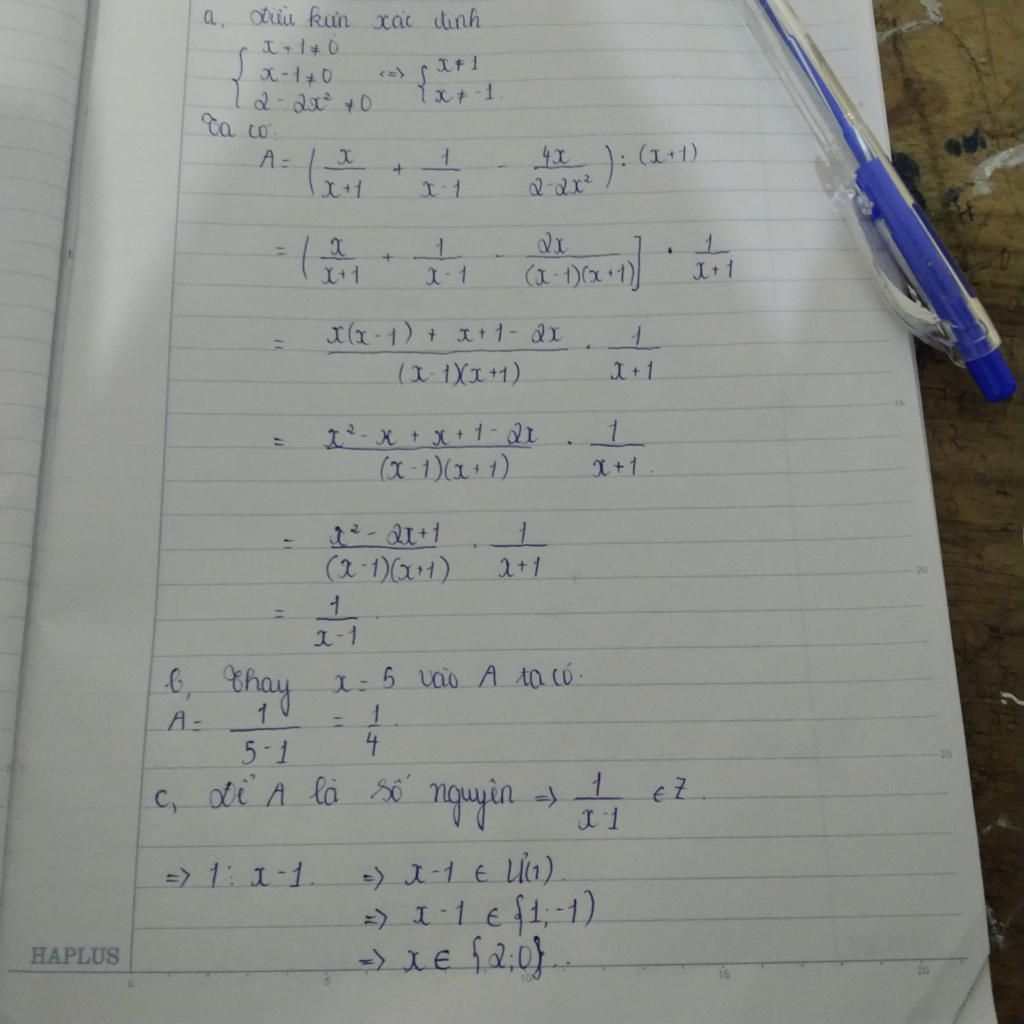 a, Điều kiện xác định
{ x+1≠0
x-1≠0 <=> { x≠1
2-2x² ≠0 x≠-1.
Ta có:
A= (x/(x+1) + 1/(x-1) - 4x/(2-2x²)) : (x+1)
= [x/(x+1) + 1/(x-1) - 2x/((x-1)(x+1))] · 1/(x+1)
= (x(x-1) + x+1-2x)/((x-1)(x+1)) · 1/(x+1)
= (x²-x+x+1-2x)/((x-1)(x+1)) · 1/(x+1).
= (x²-2x+1)/((x-1)(x+1)) · 1/(x+1)
= 1/(x-1).
b, Thay x=5 vào A ta có:
A= 1/(5-1) = 1/4.
c, Để A là số nguyên => 1/(x-1) ∈ Z.
=> 1 ⋮ x-1. => x-1 ∈ Ư(1).
=> x-1 ∈ {1;-1)
=> x ∈ {2;0}..
HAPLUS
15
20
25
0 5 10 15 20